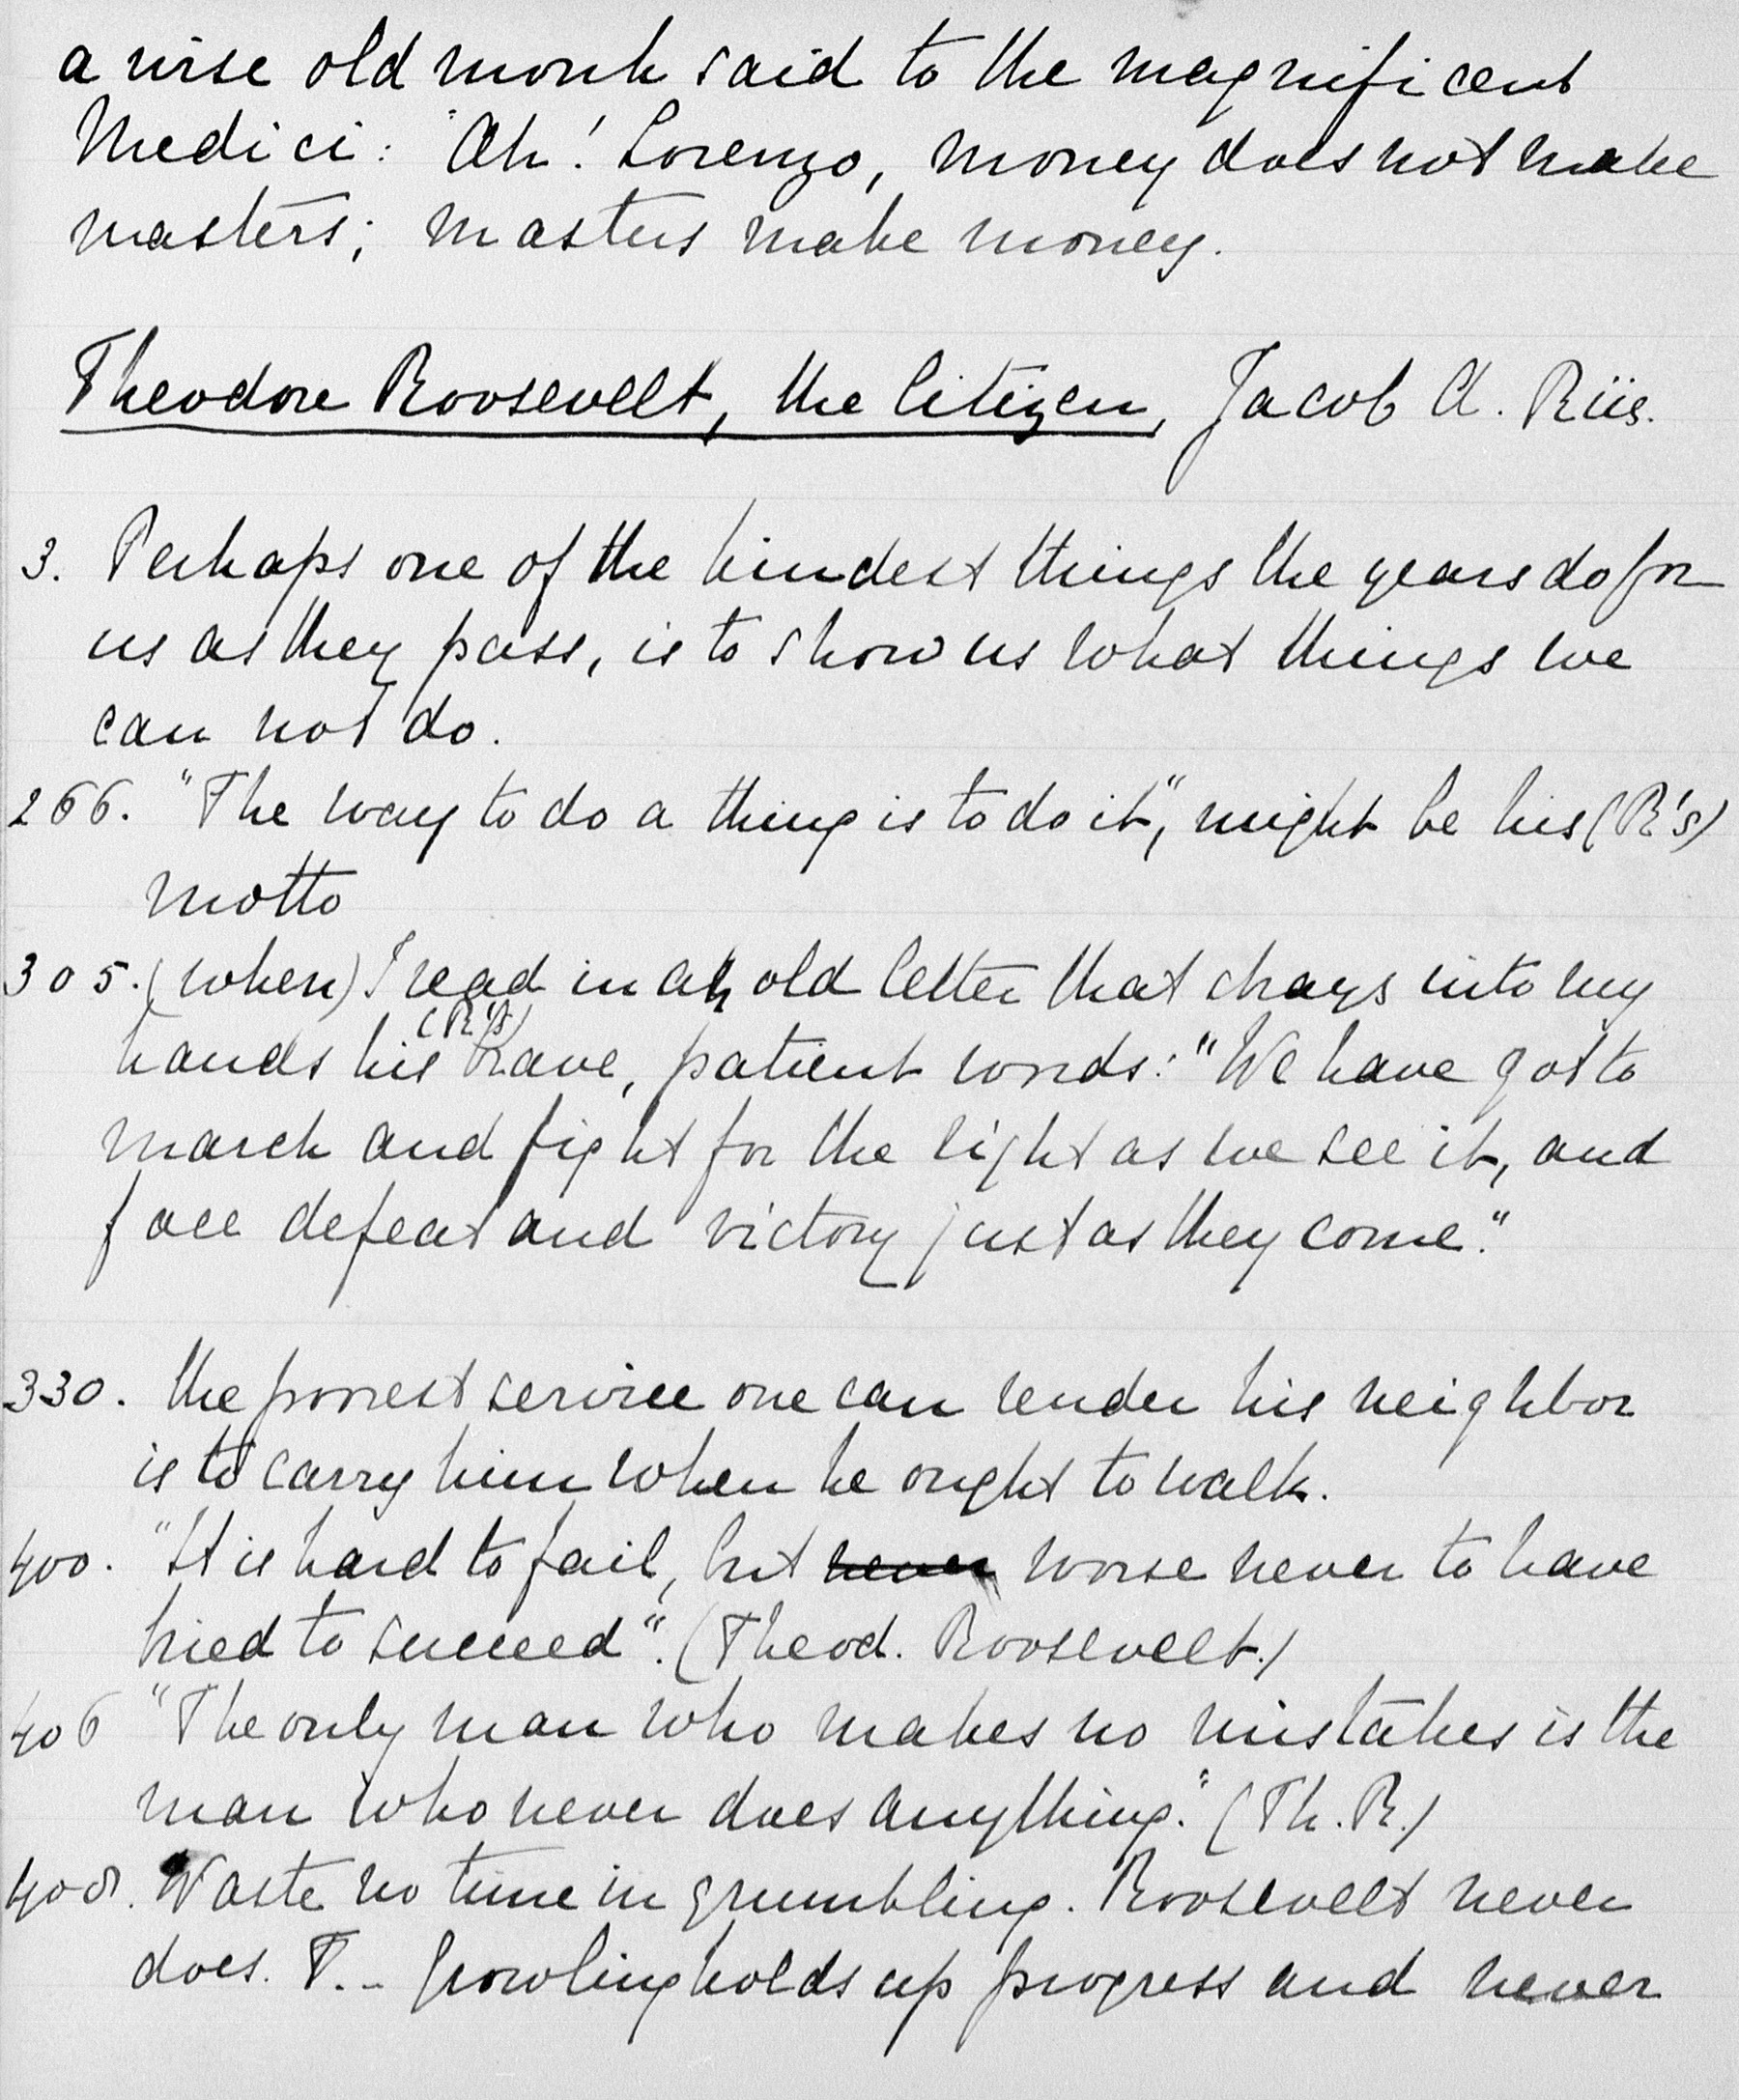 a wise old monk said to the magnificent
Medici: "Ah! Lorenzo, money does not make
masters; masters make money.
Theodore Roosevelt, the Citizen, Jacob A. Riis.
3. Perhaps one of the kindest things the years do for
us as they pass, is to show us what things we
can not do.
266. "The way to do a thing is to do it", might be his (R's)
motto
305. (when) I read in an old letter that strays into my
(R's)
hands his brave, patient words: "We have got to
march and fight for the right as we see it, and
face defeat and victory just as they come."
330. the poorest service one can render his neighbor
is to carry him when he ought to walk.
400. "It is hard to fail, but never worse never to have
tried to succeed". (Theod. Roosevelt.)
406 "The only man who makes no mistakes is the
man who never does anything." (Th. R.)
408. Waste no time in grumbling. Roosevelt never
does. T.. Growling holds up progress and never